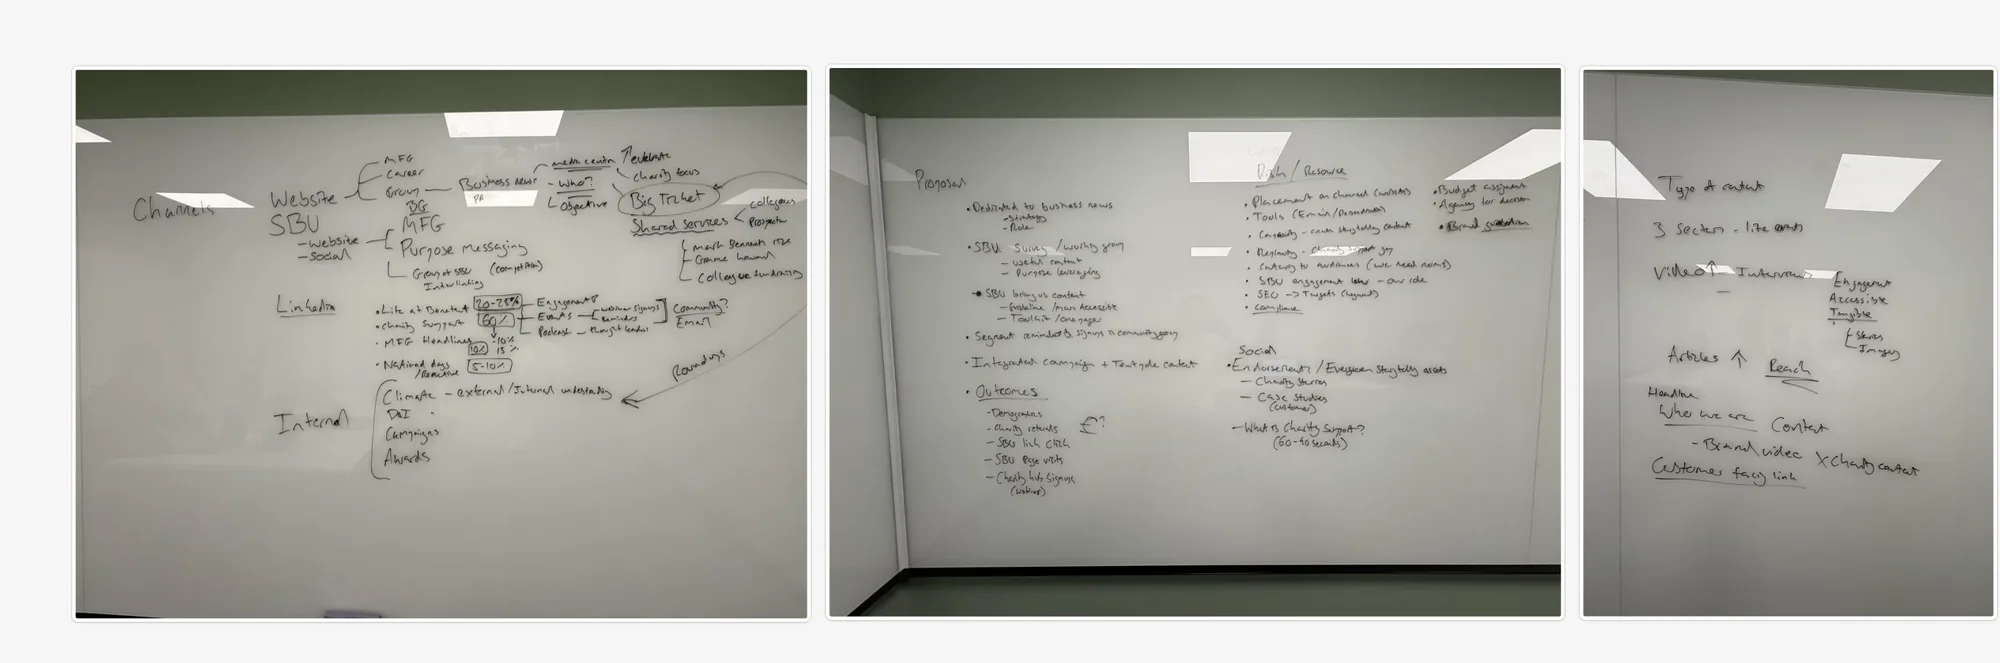 Channels
Website
MFG
Career
Group
Business news
PR
media centre
celebrate
charity focus
- Who?
Objective
Big Ticket
Shared services
colleagues
Prospects
Colleague fundraising
SBU
- Website
- Social
BG
MFG
Purpose messaging
Group of SBU (competitors)
Interlinking
LinkedIn
• Life at Benefact 20-25%
• Charity Support 60%
• MFG Headlines 10%
-10%
15%
• National days / Reactive 5-10%
Engagement
Events
Webinar signups
Reminders
Podcast - thought leaders
Community?
Email
Roundups
Internal
Climate - external/Internal understanding
D&I
Campaigns
Awards
Proposal
• Dedicated to business news
- Strategy
- Role
• SBU Survey / working group
- useful content
- Purpose leveraging
• SBU bring us content
- Guideline / more Accessible
- Toolkit / one pager
• Segment reminders & signups to community group
• Integrated campaign + Temp
content
• Outcomes
- Demographics
- Charity returns
- SBU link click
- SBU Page visits
- Charity hub signups
(webinar)
£?
Risk / Resource
• Placement on channel (websites)
• Tools (Email/
• Capacity - create storytelling content
• Catering to audiences (we need
• SBU engagement later - our role
• SEO -> Targets (segment)
• compliance
• Budget assignment
• Agency for decision
• Brand guardian
Social
• Endorsement / Evergreen Storytelling assets
- Charity stories
- Case Studies
(customer)
- What is Charity Support?
(60-90 seconds)
Type of content
3 Sectors - life events
Video ↑ - Interviews
Engagement
Accessible
Tangible
Shares
Imagery
Articles ↑ Reach
Headline
Who we are Content
- Brand video X Charity content
Customer facing link